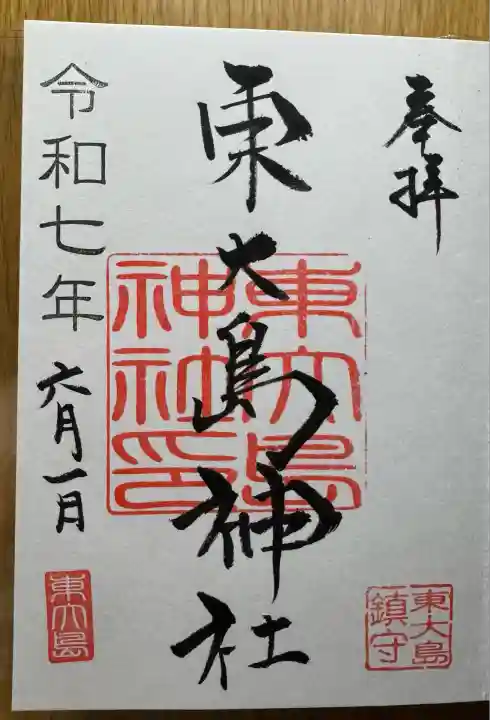 奉拝
東大島神社
東大島神社印
令和七年 六月一日
東大島鎮守
東大島